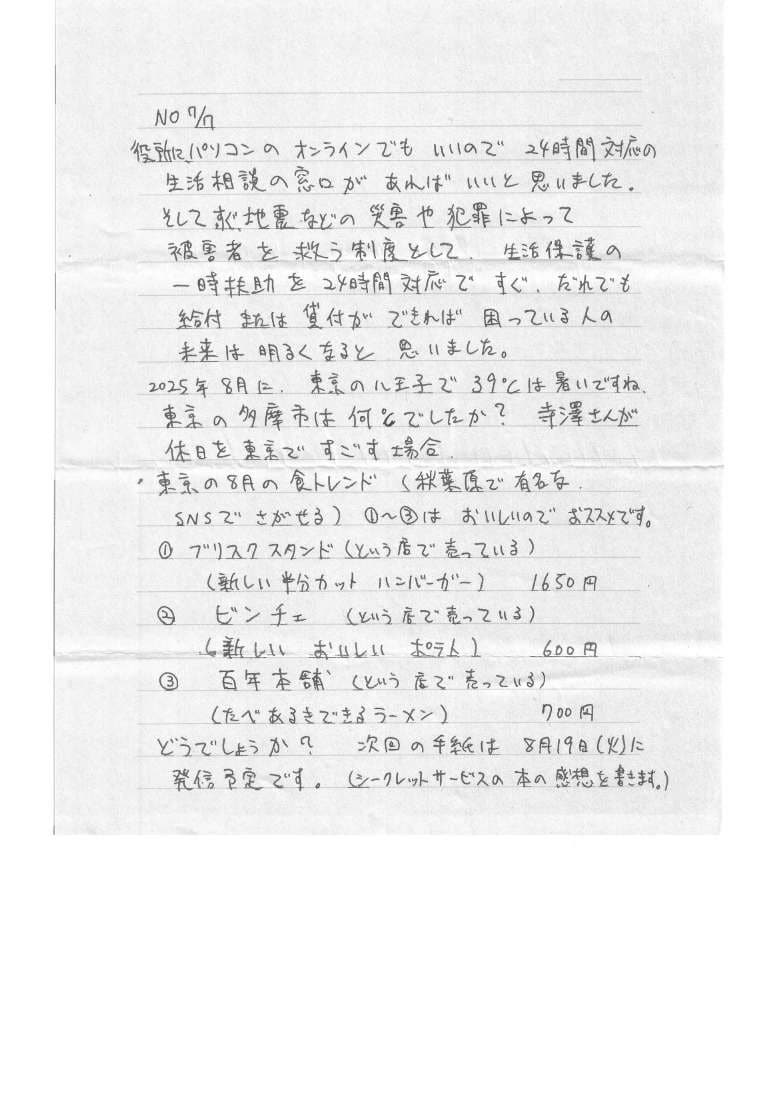 NO 7/7
役所に、パソコンの オンラインでも いいので 24時間対応の
生活相談の窓口が あれば いいと 思いました。
そして すぐ、地震などの 災害や 犯罪によって
被害者を 救う制度として、生活保護の
一時扶助を 24時間対応で すぐ、だれでも
給付 または 貸付が できれば 困っている人の
未来は 明るくなると 思いました。
2025年 8月に、東京の八王子で 39℃は暑いですね、
東京の多摩市は何℃でしたか? 寺澤さんが
休日を東京で すごす場合、
・東京の8月の食トレンド (秋葉原で有名な、
SNSで さがせる) ①~③は おいしいので おススメです。
① ブリスク スタンド (という店で売っている)
(新しい 半分カット ハンバーガー) 1650円
② ビンチェ (という店で売っている)
(新しい おいしい ポテト) 600円
③ 百年本舗 (という店で売っている)
(たべあるきできるラーメン) 700円
どうでしょうか? 次回の手紙は 8月19日(火)に
発信予定です。(シークレットサービスの本の感想を書きます。)